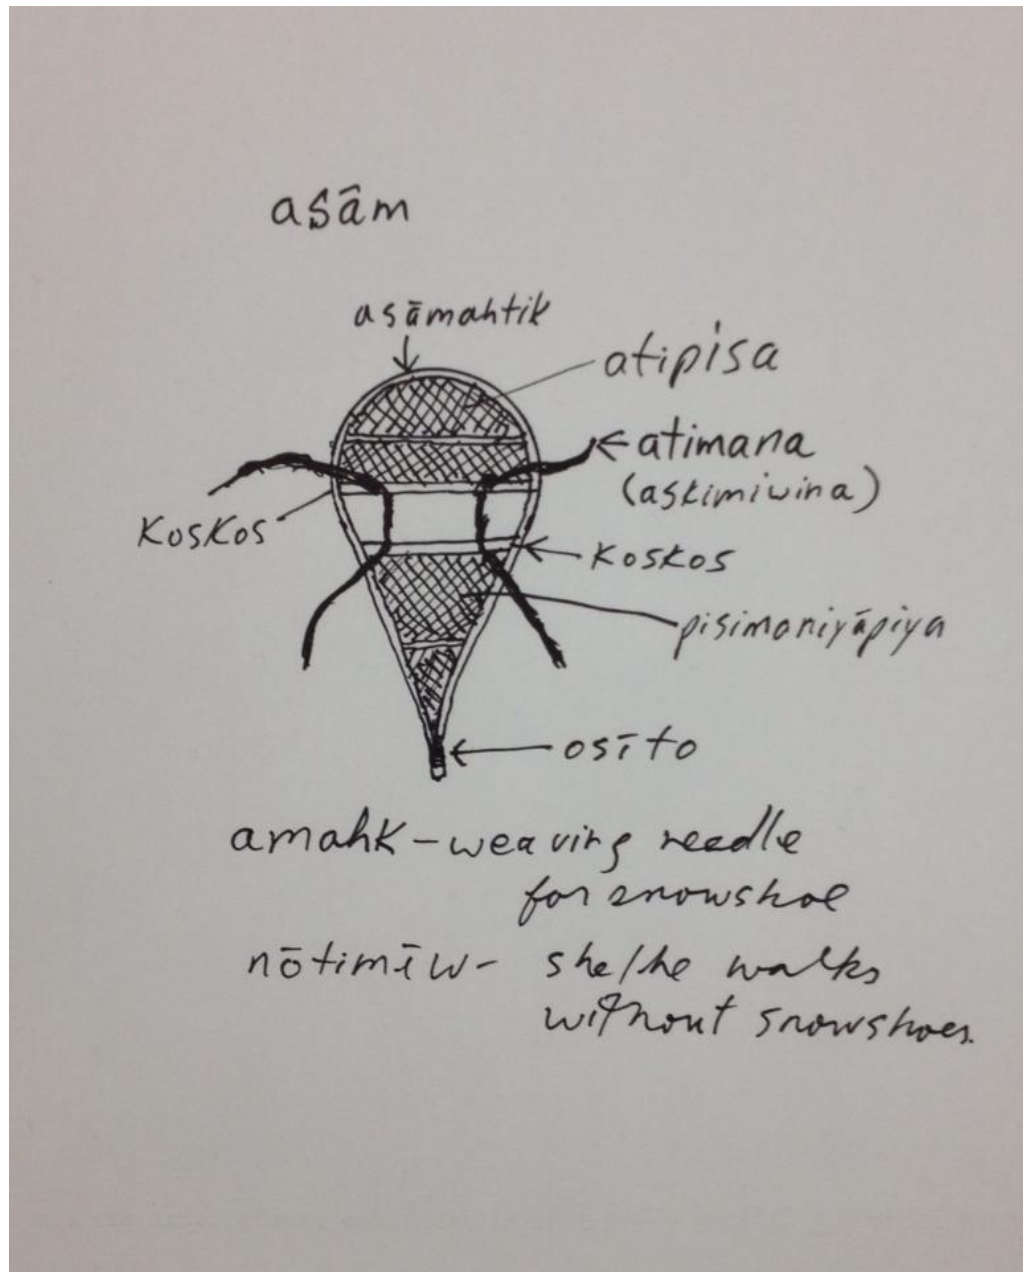 asâm
asāmahtik
atipisa
atimana
(askimiwina)
koskos
koskos
pisimoniyāpiya
osīto
amahk - weaving needle
for snowshoe
nōtimēw - she/he walks
without snowshoes.